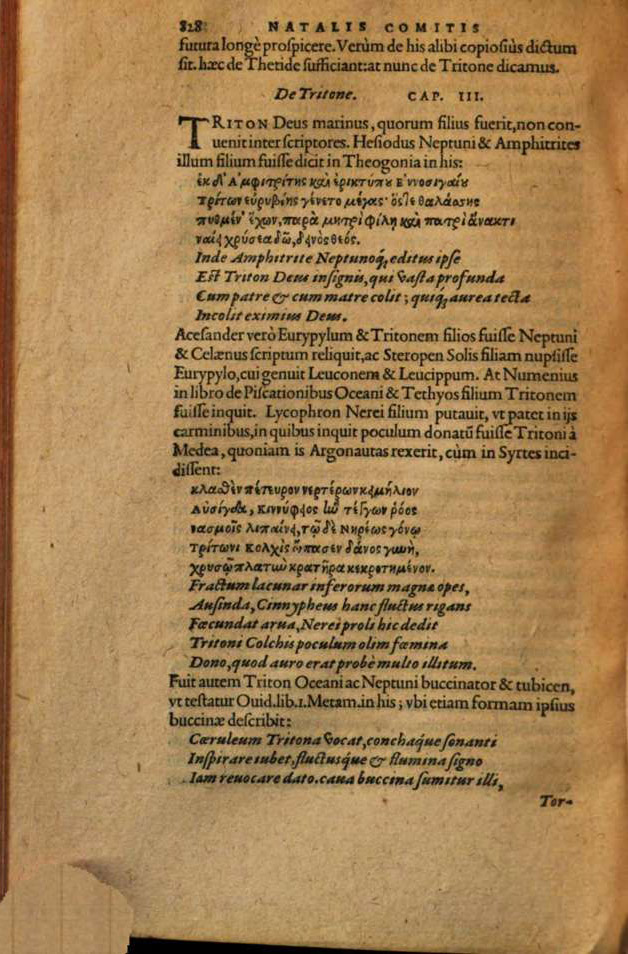 828 NATALIS COMITIS
futura longè prospicere. Verùm de his alibi copiosiùs dictum
sit. hæc de Thetide sufficiant: at nunc de Tritone dicamus.
De Tritone. CAP. III.
TRITON Deus marinus, quorum filius fuerit, non con-
uenit inter scriptores. Hesiodus Neptuni & Amphitrites
illum filium fuisse dicit in Theogonia in his:
ἐκ δ' Ἀμφιτρίτης καὶ ἐρικτύπου Ἐννοσιγαίου
τρίτων εὐρυβίης γένετο μέγας· ὅςτε θαλάσσης
πυθμέν' ἔχων, παρὰ μητρὶ φίλῃ καὶ πατρὶ ἄνακτι
ναίει χρύσεα δῶ, δεινὸς θεός.
Inde Amphitrite Neptunoq́; editus ipse
Est Triton Deus insignis, qui vasta profunda
Cum patre & cum matre colit; quiq́; aurea tecta
Incolit eximius Deus.
Acesander verò Eurypylum & Tritonem filios fuisse Neptuni
& Celænus scriptum reliquit, ac Steropen Solis filiam nupsisse
Eurypylo, cui genuit Leuconem & Leucippum. At Numenius
in libro de Piscationibus Oceani & Tethyos filium Tritonem
fuisse inquit. Lycophron Nerei filium putauit, vt patet in ijs
carminibus, in quibus inquit poculum donatū fuisse Tritoni à
Medea, quoniam is Argonautas rexerit, cùm in Syrtes inci-
dissent:
κλαθὲν πέτευρον νερτέρων κειμήλιον
Αὐσίγδα, Κιννύφιος ῥόος
νασμοῖς λιπαίνει, τῷ δὲ Νηρέως γόνῳ
Τρίτωνι Κολχὶς ὤπασεν δάνος γυνὴ,
χρυσῷ πλατὺν κρατῆρα κεκροτημένον.
Fractum lacunar inferorum magnæ opes,
Ausinda, Cinnypheus hanc fluctus rigans
Fœcundat arua, Nerei proli hic dedit
Tritoni Colchis poculum olim fœmina
Dono, quod auro erat probè multo illitum.
Fuit autem Triton Oceani ac Neptuni buccinator & tubicen,
vt testatur Ouid. lib. 1. Metam. in his; vbi etiam formam ipsius
buccinæ describit:
Cæruleum Tritona vocat, conchaq́ue sonanti
Inspirare iubet, fluctusq́ue & flumina signo
Iam reuocare dato. caua buccina sumitur illi,
Tor-